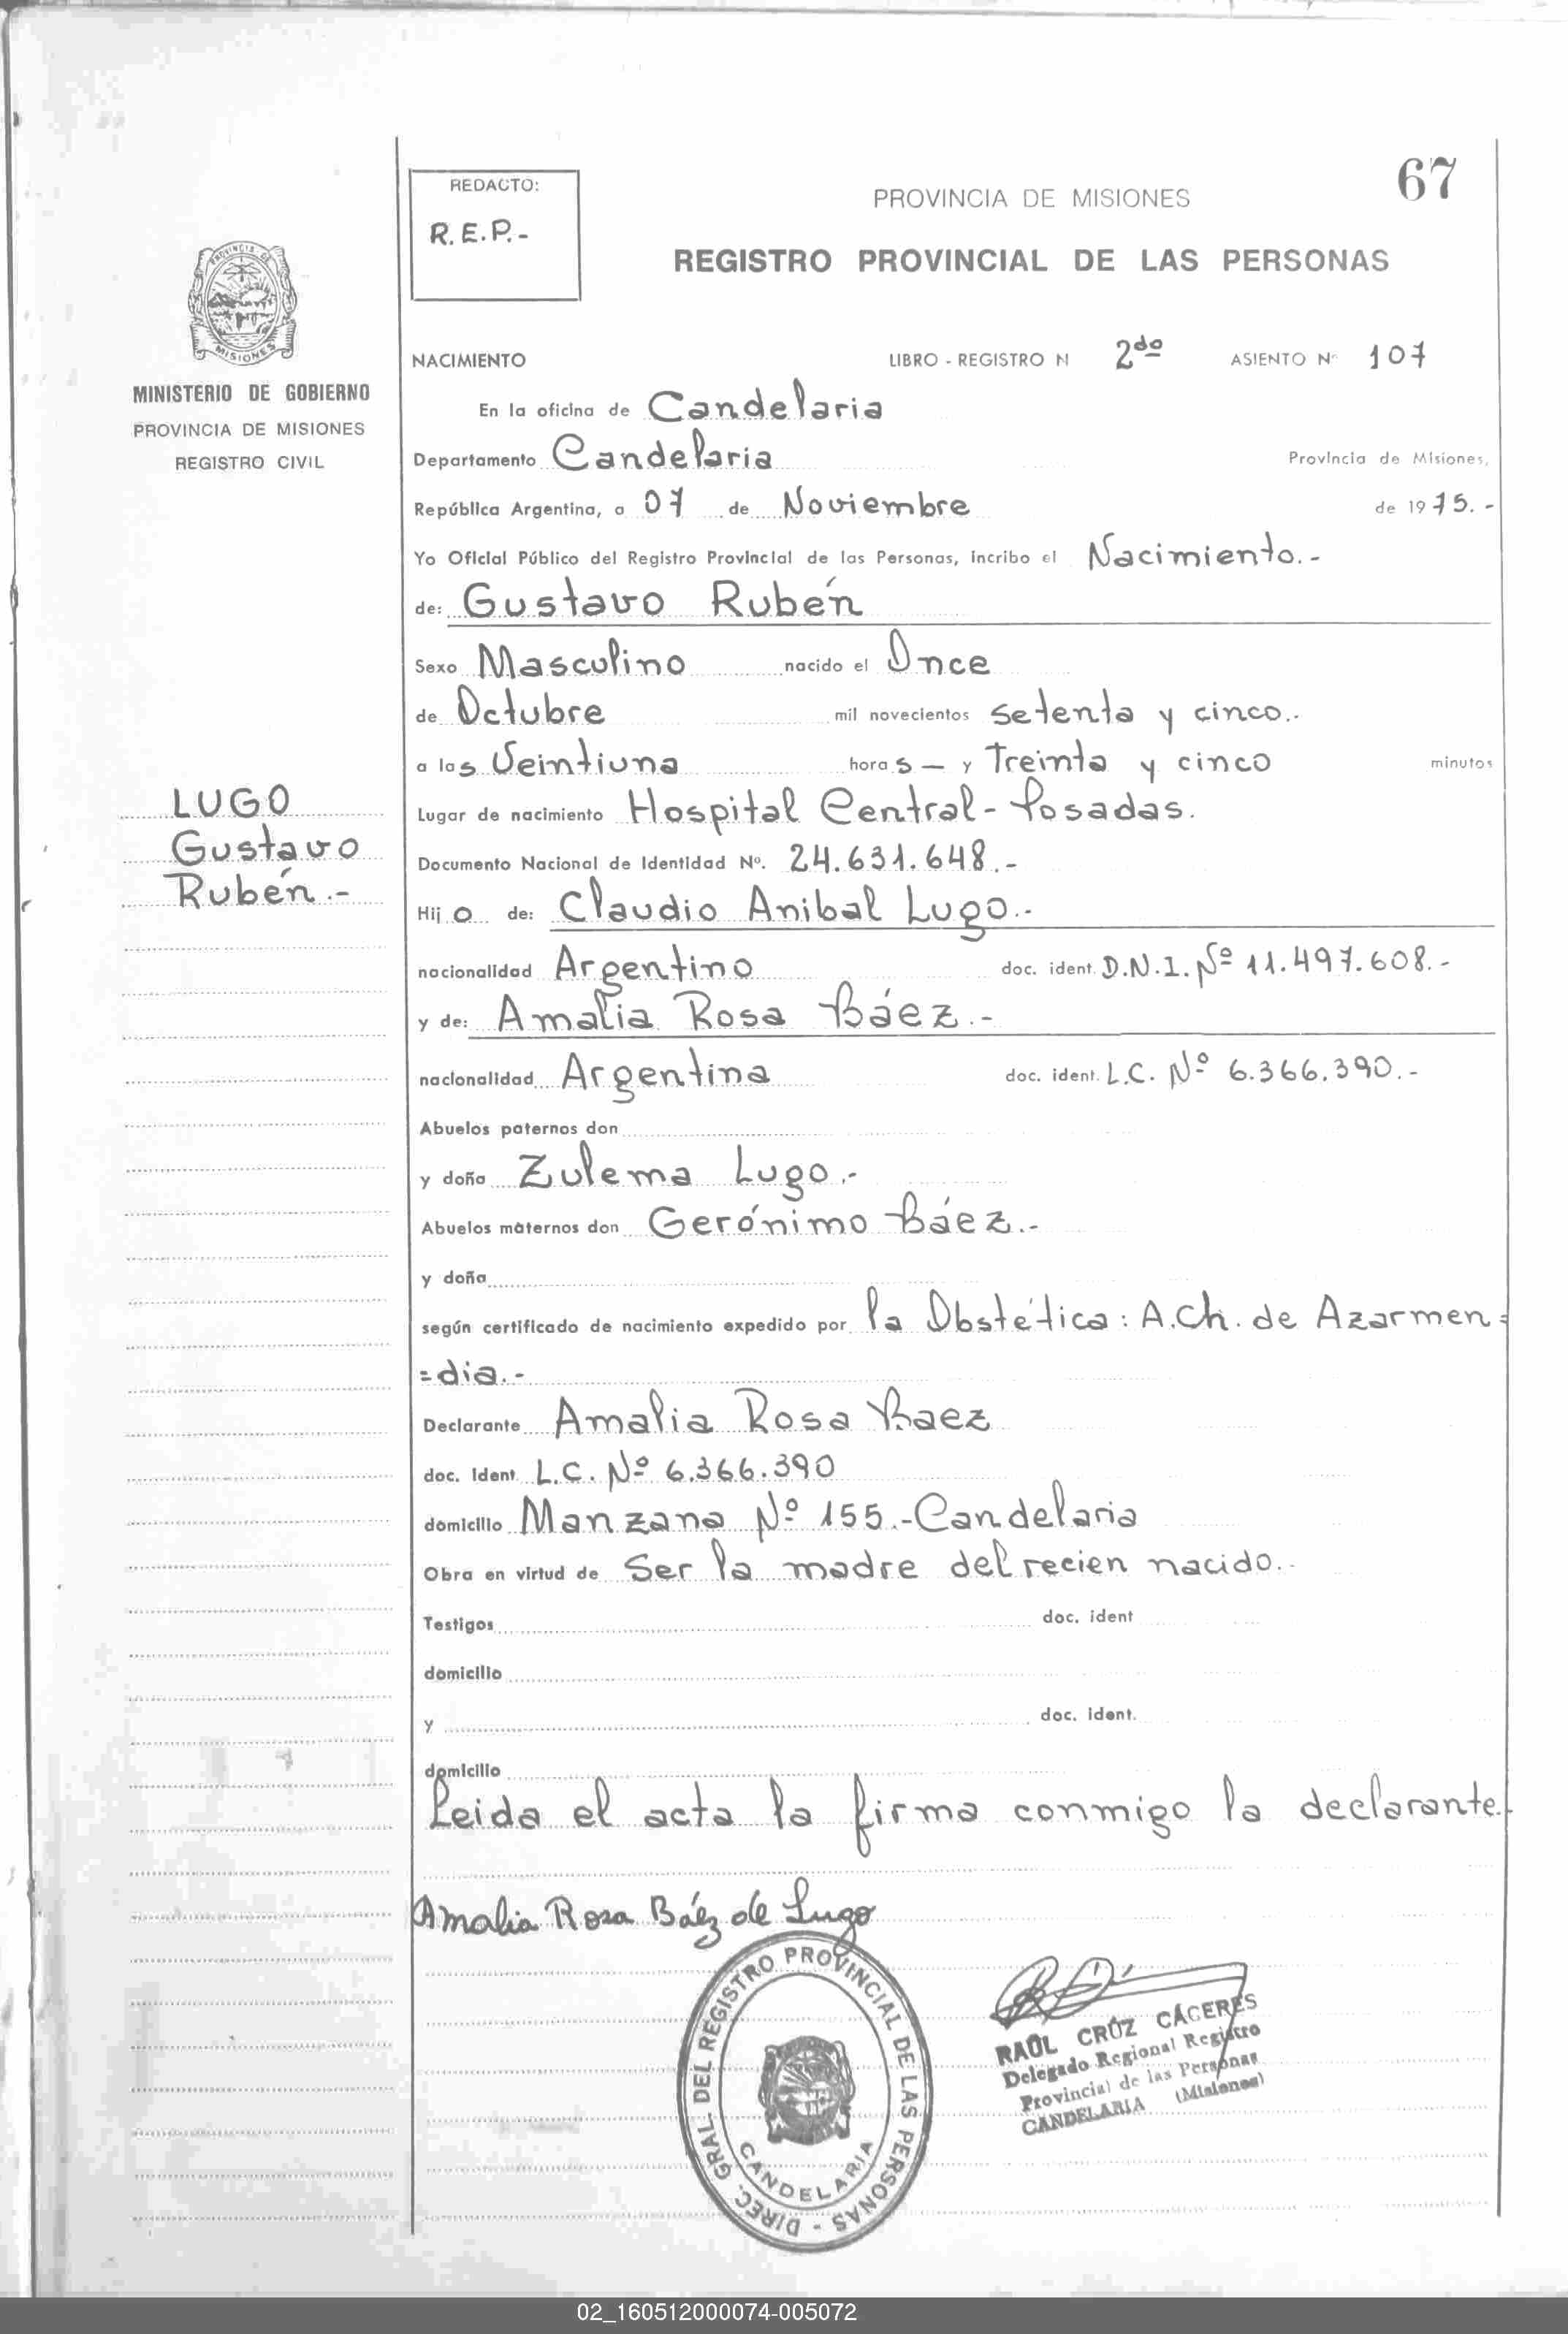 67
REDACTO:
R.E.P.-
PROVINCIA DE MISIONES
REGISTRO PROVINCIAL DE LAS PERSONAS
PROVINCIA DE
MISIONES
MINISTERIO DE GOBIERNO
PROVINCIA DE MISIONES
REGISTRO CIVIL
LUGO
Gustavo
Rubén.-
NACIMIENTO LIBRO - REGISTRO N 2do ASIENTO Nº 107
En la oficina de Candelaria
Departamento Candelaria Provincia de Misiones,
República Argentina, a 07 de Noviembre de 1975.-
Yo Oficial Público del Registro Provincial de las Personas, incribo el Nacimiento.-
de: Gustavo Rubén
Sexo Masculino nacido el Once
de Octubre mil novecientos setenta y cinco..
a las Veintiuna horas — y Treinta y cinco minutos
Lugar de nacimiento Hospital Central - Posadas.
Documento Nacional de Identidad Nº. 24.631.648.-
Hijo de: Claudio Anibal Lugo.-
nacionalidad Argentino doc. ident. D.N.I. Nº 11.497.608.-
y de: Amalia Rosa Báez.-
nacionalidad Argentina doc. ident. L.C. Nº 6.366.390.-
Abuelos paternos don
y doña Zulema Lugo.-
Abuelos maternos don Gerónimo Báez.-
y doña
según certificado de nacimiento expedido por la Obstética: A.Ch. de Azarmen=
=dia.-
Declarante Amalia Rosa Baez
doc. Ident. L.C. Nº 6.366.390
domicilio Manzana Nº 155.-Candelaria
Obra en virtud de Ser la madre del recien nacido.-
Testigos doc. ident
domicilio
y doc. ident.
domicilio
Leida el acta la firma conmigo la declarante.
Amalia Rosa Báez de Lugo
DIREC. GRAL. DEL REGISTRO PROVINCIAL DE LAS PERSONAS -
CANDELARIA
RAUL CRUZ CÁCERES
Delegado Regional Registro
Provincial de las Personas
CANDELARIA (Misiones)
02_160512000074-005072